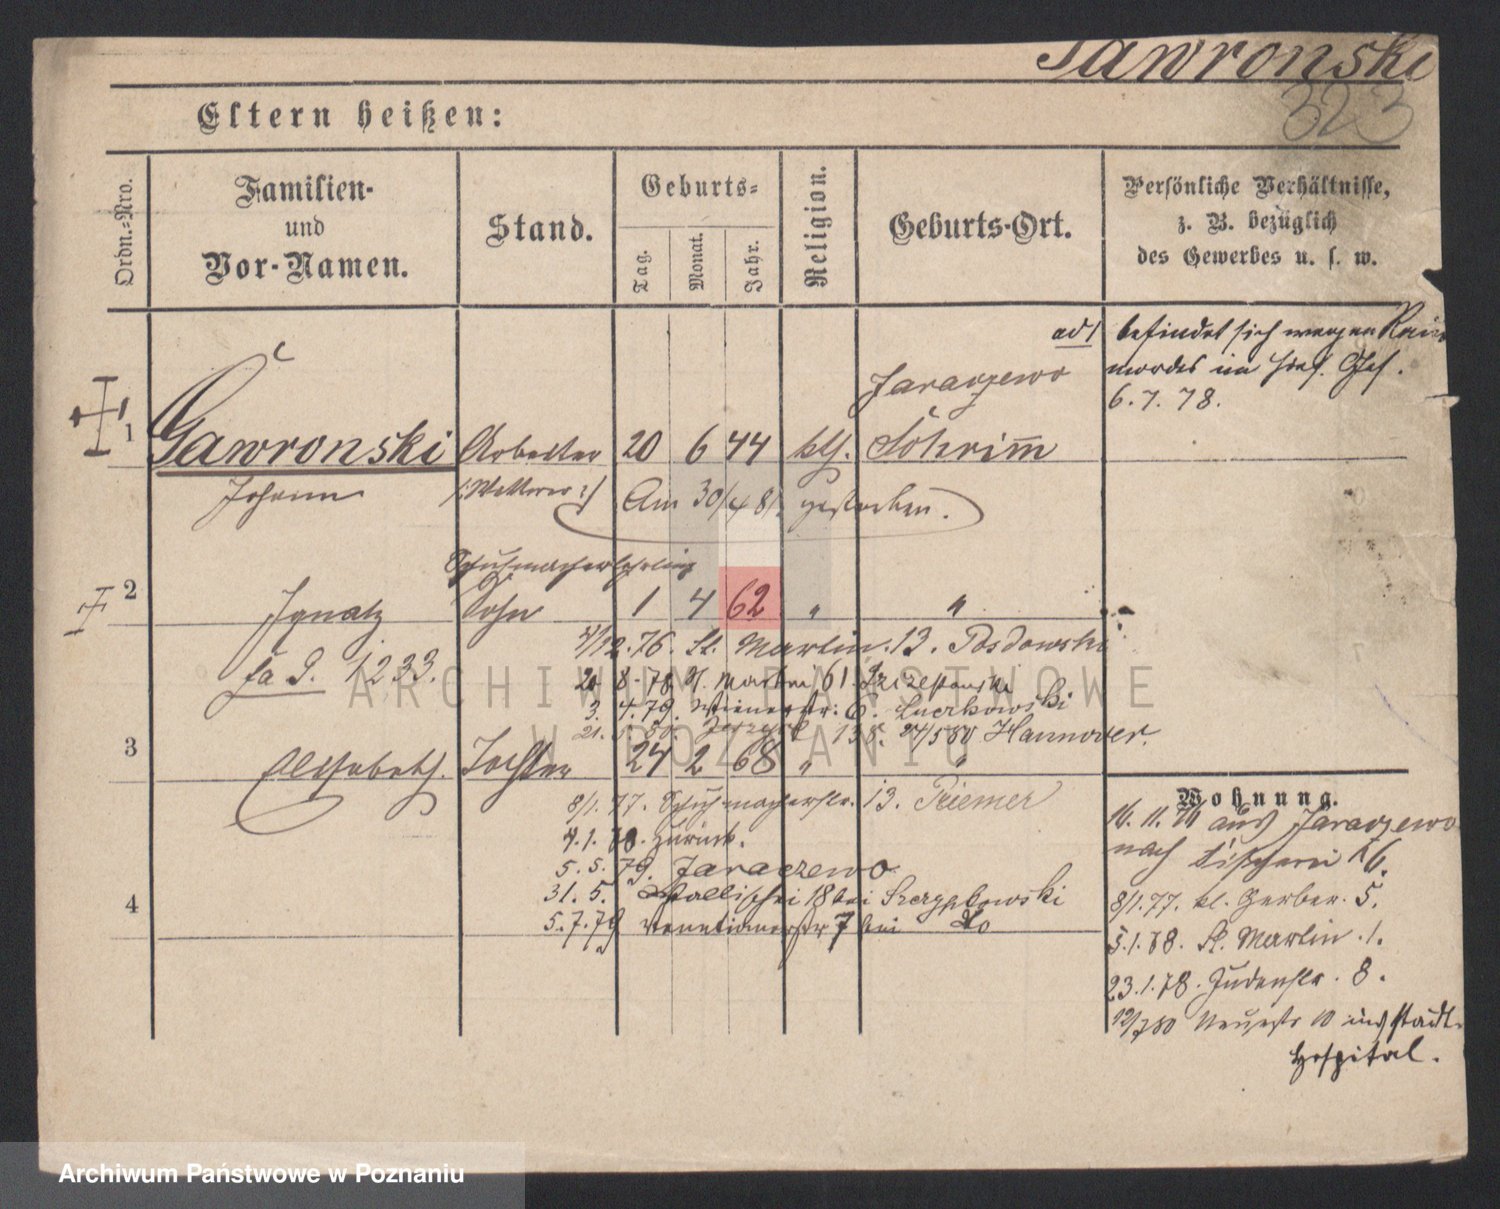 Gawronski
323
Eltern heißen:
Ordn.-Nro.
Familien-
und
Vor-Namen.
Stand.
Geburts-
Tag.
Monat.
Jahr.
Religion.
Geburts-Ort.
Persönliche Verhältnisse,
z. B. bezüglich
des Gewerbes u. s. w.
ad 1 befindet sich wegen
mordes im hies. Gef.
6. 7. 78.
Jaraczewo
1 Gawronski Arbeiter 20 6 44 kth. Schrimm
Johann /: Wittwer :/ Am 30/4 81. gestorben.
Schuhmacherlehrling
2 Ignatz Sohn 1 4 62 " "
4/12. 76. St. Martin 13.
fa G. 1233.
8. 78 St. Martin 61.
3. 4. 79. 6.
21. 138. 24/5 80 Hannover.
3 Elisabeth. Tochter 24 2 68 " "
8/1. 77. Schuhmacherstr. 13. Priemer
4. 1. 78. zurück.
5. 5. 79. Jaraczewo.
31. 5. Wallischei 18 bei
4
5. 7. 79 Venetianerstr 7 bei do
Wohnung.
16. 11. 76 aus Jaraczewo
nach Fischerei 16.
8/1. 77. kl. Gerber. 5.
5. 1. 78. St. Martin. 1.
23. 1. 78. Judenstr. 8.
12/7 80 Neuestr 10 ins Stadt-
Hospital.
ARCHIWUM PAŃSTWOWE
W POZNANIU
Archiwum Państwowe w Poznaniu